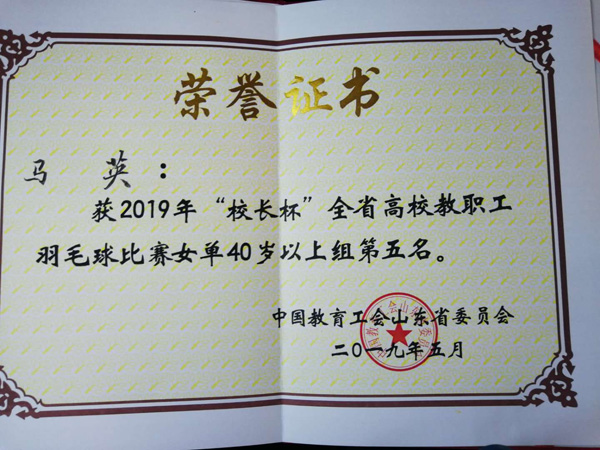 荣誉证书
马 英：
获2019年“校长杯”全省高校教职工
羽毛球比赛女单40岁以上组第五名。
中国教育工会山东省委员会
二〇一九年五月